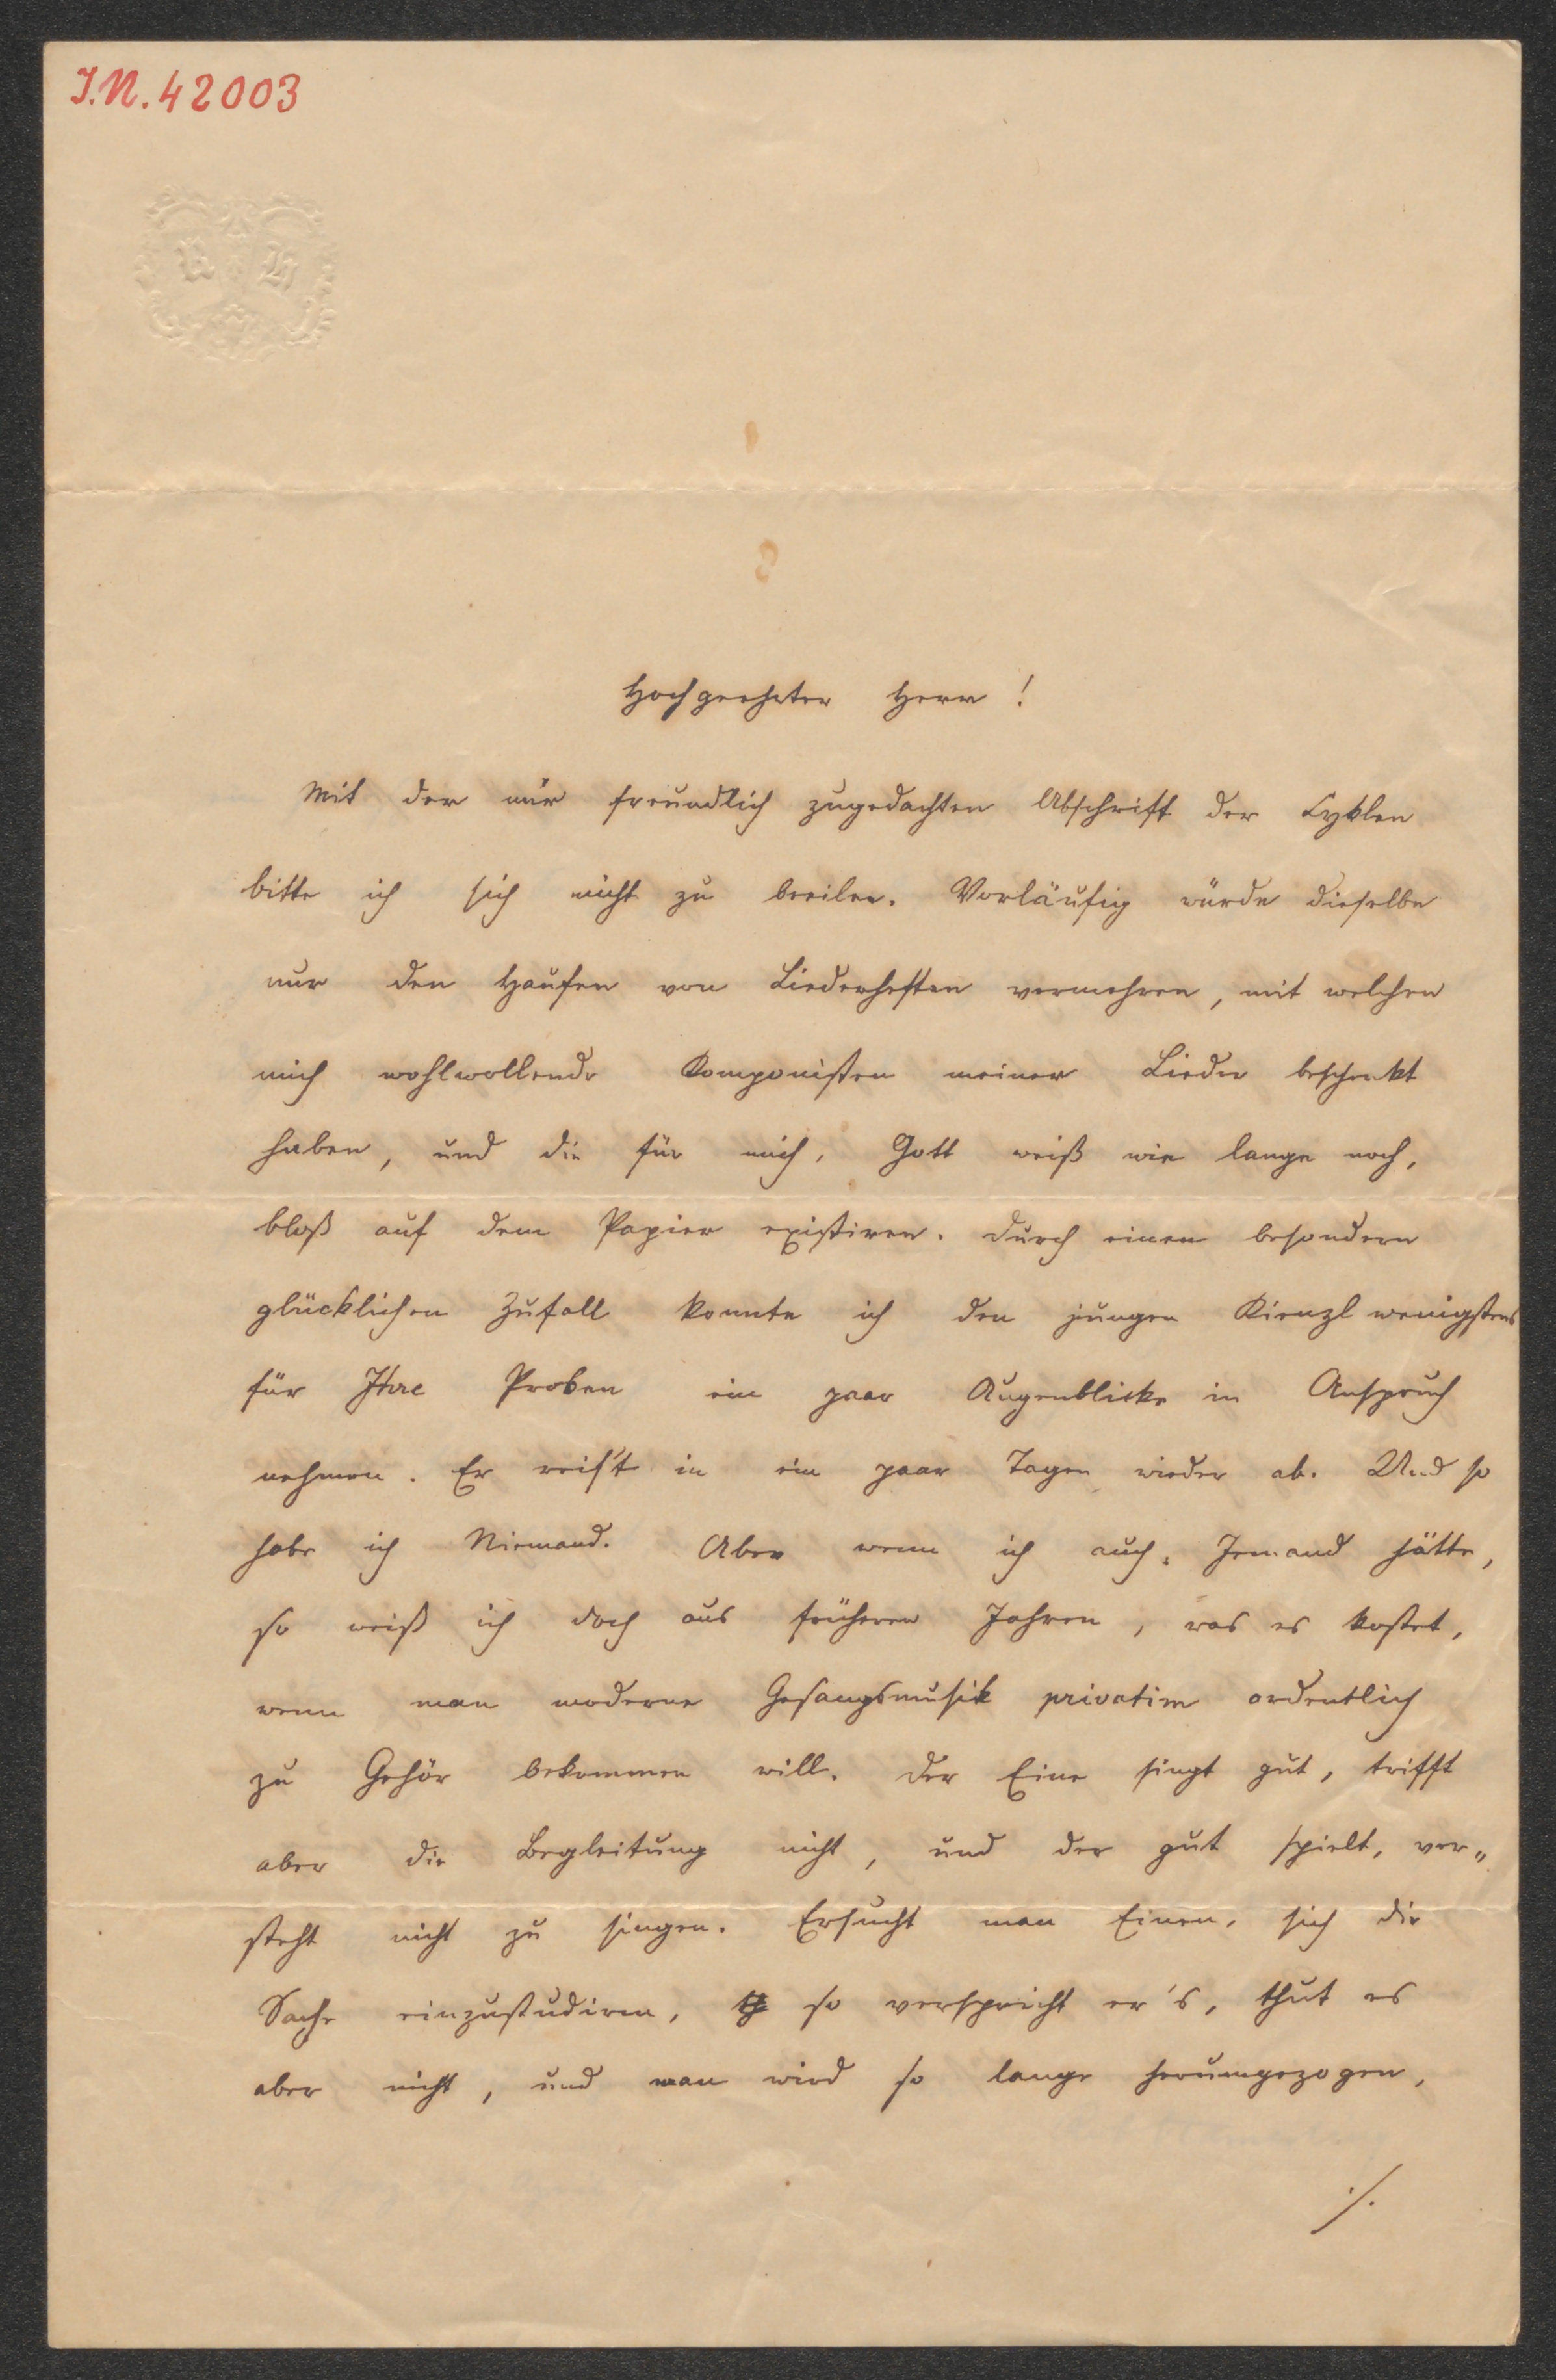 I.N. 42003
R H
Hochgeehrter Herr!
Mit der mir freundlich zugedachten Abschrift der Cyklen
bitte ich sich nicht zu beeilen. Vorläufig würde dieselbe
nur den Haufen von Liederheften vermehren, mit welchen
mich wohlwollende Komponisten meiner Lieder beschenkt
haben, und die für mich, Gott weiß wie lange noch,
bloß auf dem Papier existiren. Durch einen besondern
glücklichen Zufall konnte ich den jungen Kienzl wenigstens
für Ihre Proben ein paar Augenblicke in Anspruch
nehmen. Er reis't in ein paar Tagen wieder ab. Und so
habe ich Niemand. Aber wenn ich auch Jemand hätte,
so weiß ich doch aus früheren Jahren, was es kostet,
wenn man moderne Gesangsmusik privatim ordentlich
zu Gehör bekommen will. Der Eine singt gut, trifft
aber die Begleitung nicht, und der gut spielt, ver„
steht nicht zu singen. Ersucht man Einen, sich die
Sache einzustudiren, so verspricht er's, thut es
aber nicht, und man wird so lange herumgezogen,
./.